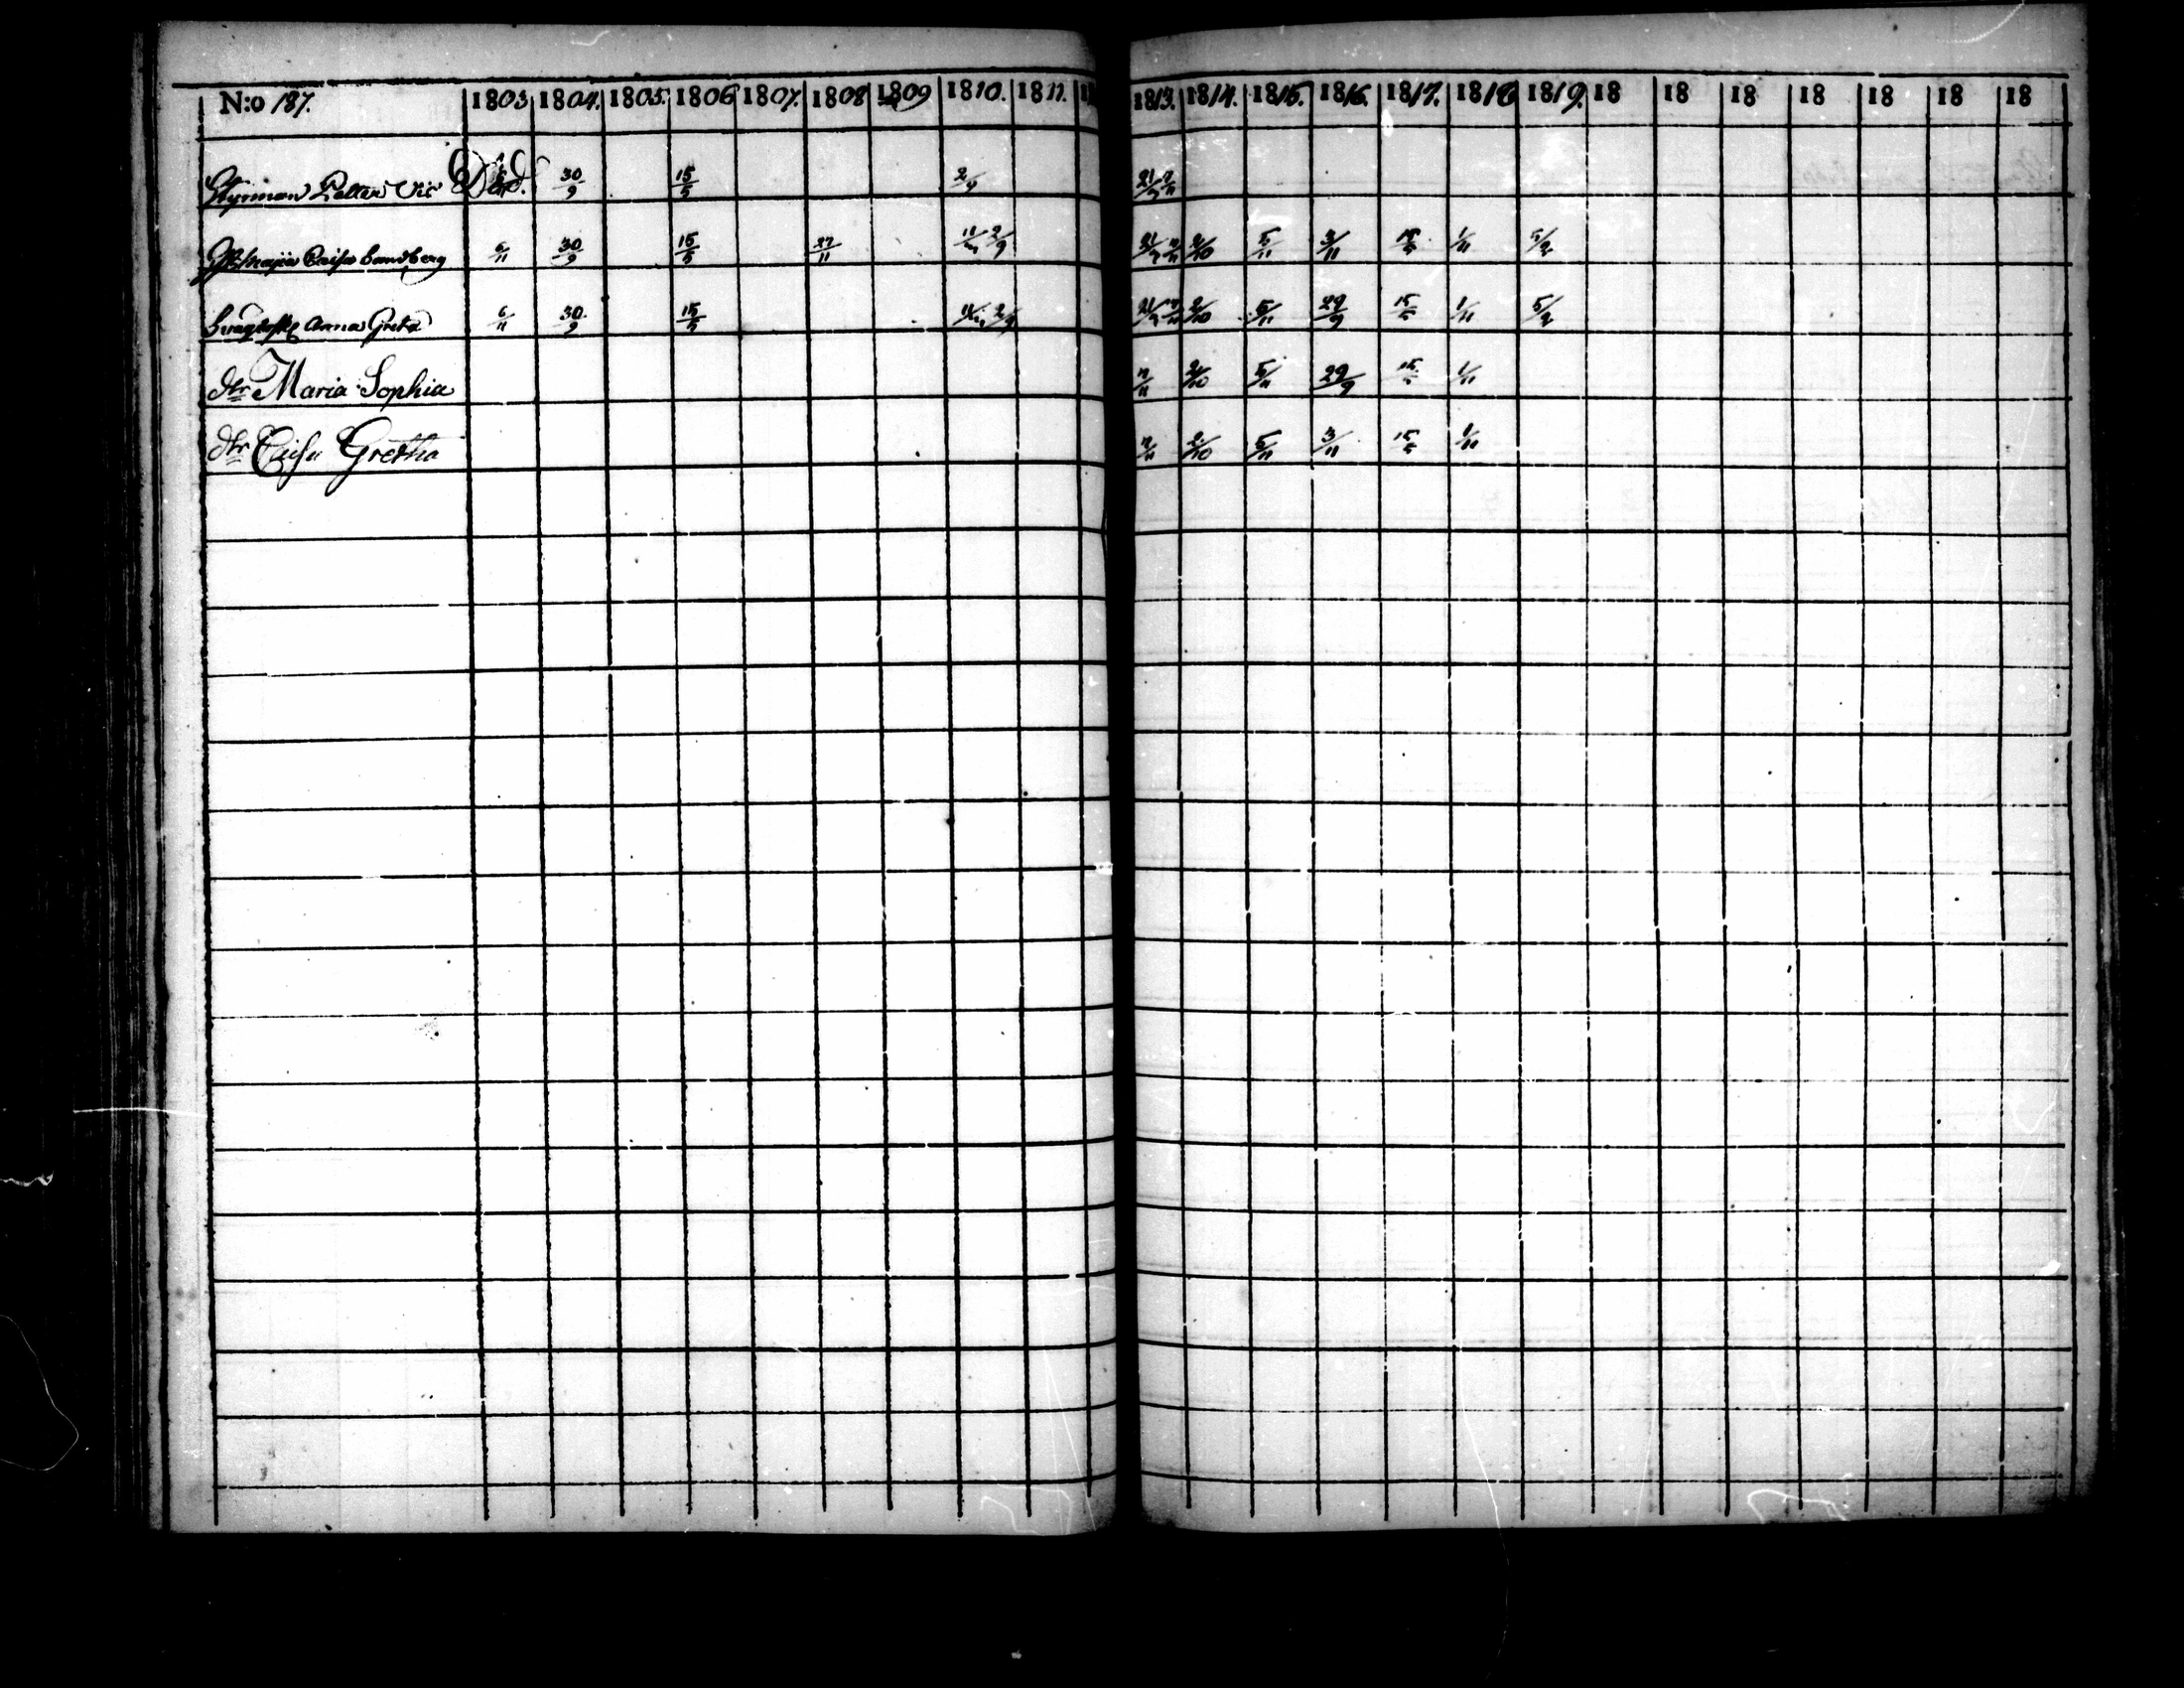 N:o 187. 1803 1804. 1805. 1806 1807. 1808 1809 1810. 1811. 1813. 1814. 1815. 1816. 1817. 1818 1819. 18 18 18 18 18 18 18
Styrman Petter Död. 30/9 15/5 2/9 21/
Maija Caisa Sandberg 6/11 30/9 15/5 27/11 11/ 2/9 21/ 2/10 5/11 3/11 15/5 1/11 5/2
Anna Greta 6/11 30/9 15/5 11/ 2/9 21/ 2/10 5/11 29/9 15/5 1/11 5/2
dtr Maria Sophia 2/10 5/11 29/9 15/5 1/11
dtr Caisa Gretha 2/10 5/11 3/11 15/5 1/11